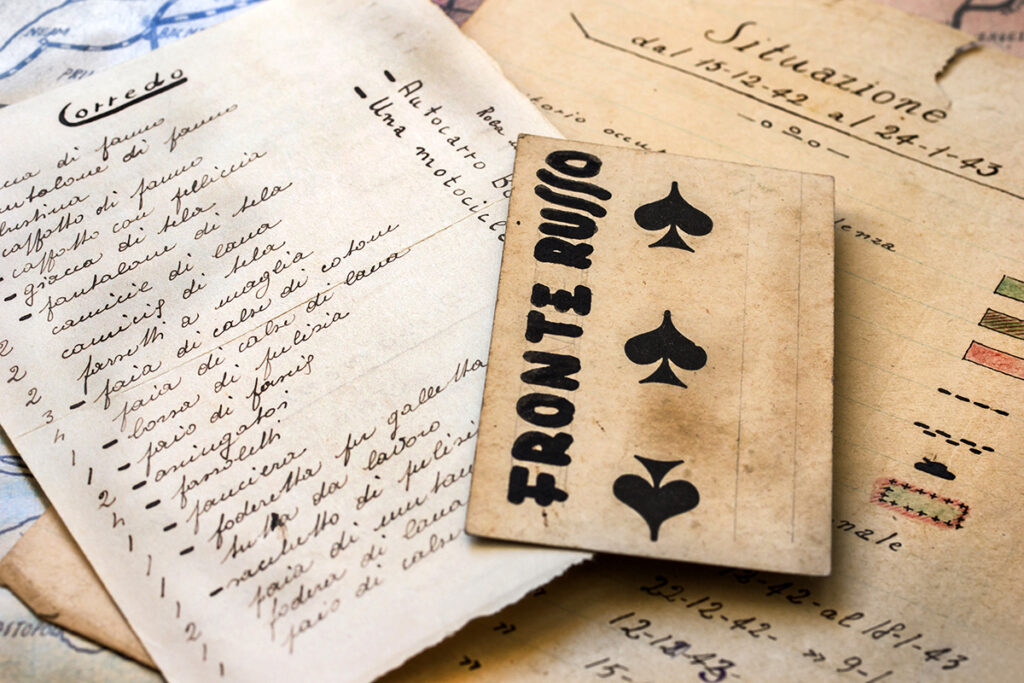 Corredo
di panno
pantalone di panno
bustina
cappotto di panno
- cappotto con pelliccia
- giacca di tela
- pantalone di tela
2 camicie di lana
2 camicie di tela
2 farsetti a maglia
3 - paia di calze di cotone
4 paia di calze di lana
1 - borsa di pulizia
1 - paio di
2 - asciugatoi
4 - fazzoletti
1 - panciera
1 foderetta per galletta
1 tuta da lavoro
1 - sacchetto di pulizia
2 paia di mutande
1 fodera di lana
1 paio di calze
Roba
- Autocarro
- Una motocicl
FRONTE RUSSO
Situazione
dal 15-12-42 al 24-1-43
torio occup
denza
nale
-42- al 18-1-43
22-12-42- » 9-1-
» 12-12-43
» 15-